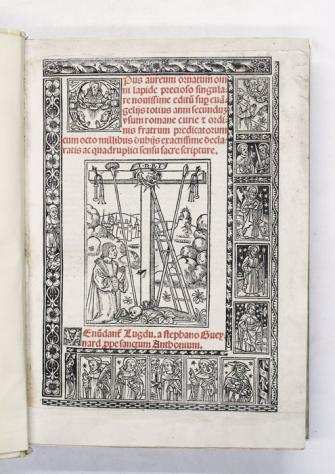 Opus aureum ornatum om
ni lapide precioso singula
re nouissime editū sup euā
gelijs totius anni secunduz
vsum romane curie ⁊ ordi
nis fratrum predicatorum
cum octo milibus dubijs exactissime decla
ratis ac quadruplici sensu sacre scripture.
Venūdant̄ Lugdu. a stephano Guey
nard. ppe sanctum Anthonium.